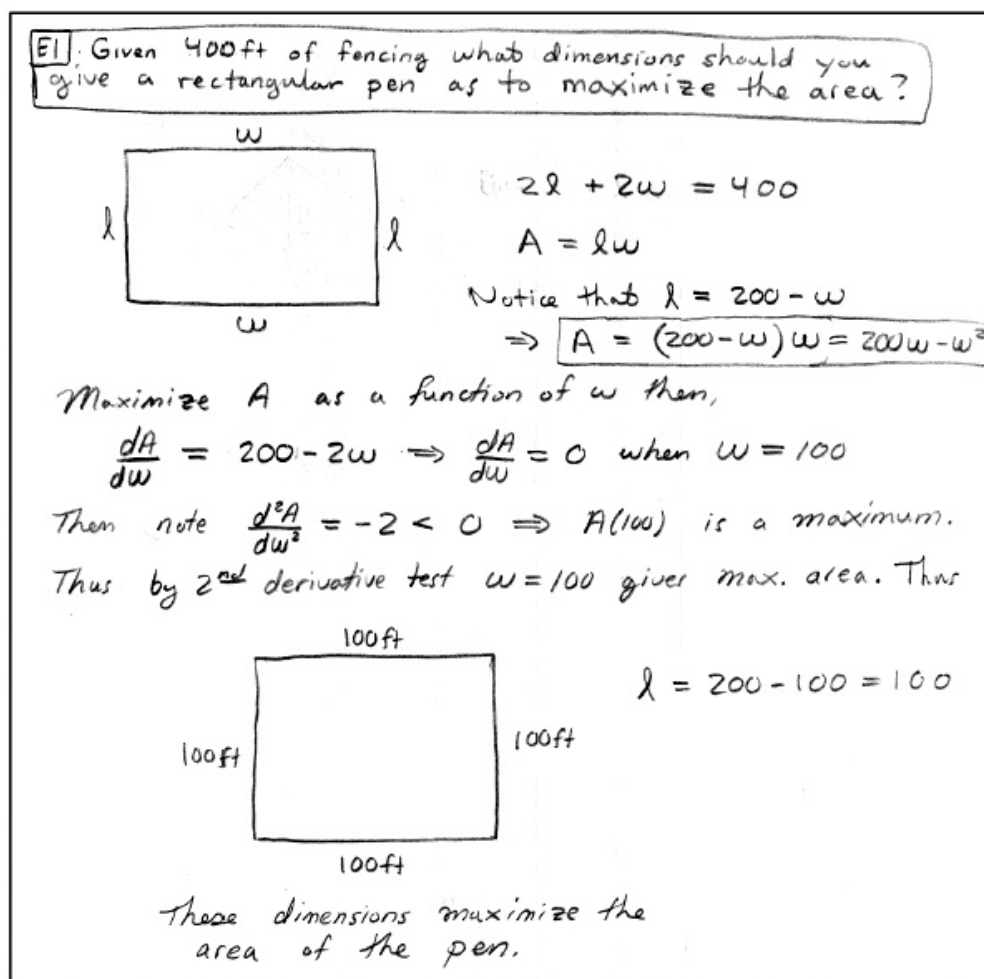 E1. Given 400ft of fencing what dimensions should you
give a rectangular pen as to maximize the area?
w
2l + 2w = 400
l
l
A = lw
Notice that l = 200 - w
w
⇒ A = (200-w)w = 200w - w²
Maximize A as a function of w then,
dA/dw = 200 - 2w ⇒ dA/dw = 0 when w = 100
Then note d²A/dw² = -2 < 0 ⇒ A(100) is a maximum.
Thus by 2nd derivative test w = 100 gives max. area. Thus
100ft
l = 200 - 100 = 100
100ft
100ft
100ft
These dimensions maximize the
area of the pen.